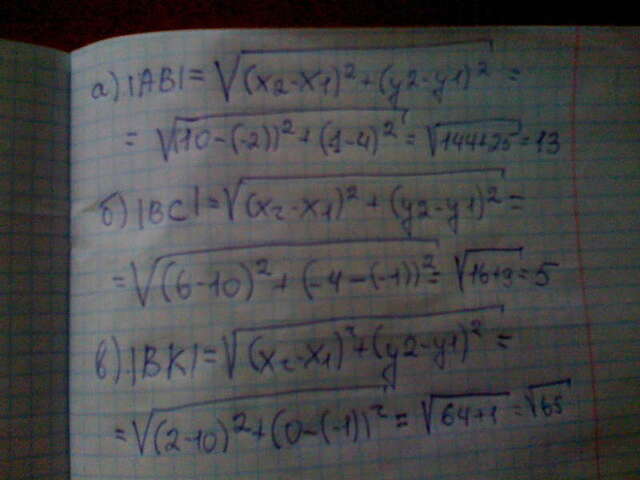 а) |AB| = √(x2-x1)² + (y2-y1)² =
= √(10-(-2))² + (1-4)² = √144+25 = 13
б) |BC| = √(x2-x1)² + (y2-y1)² =
= √(6-10)² + (-4-(-1))² = √16+9 = 5
в) |BK| = √(x2-x1)² + (y2-y1)² =
= √(2-10)² + (0-(-1))² = √64+1 = √65